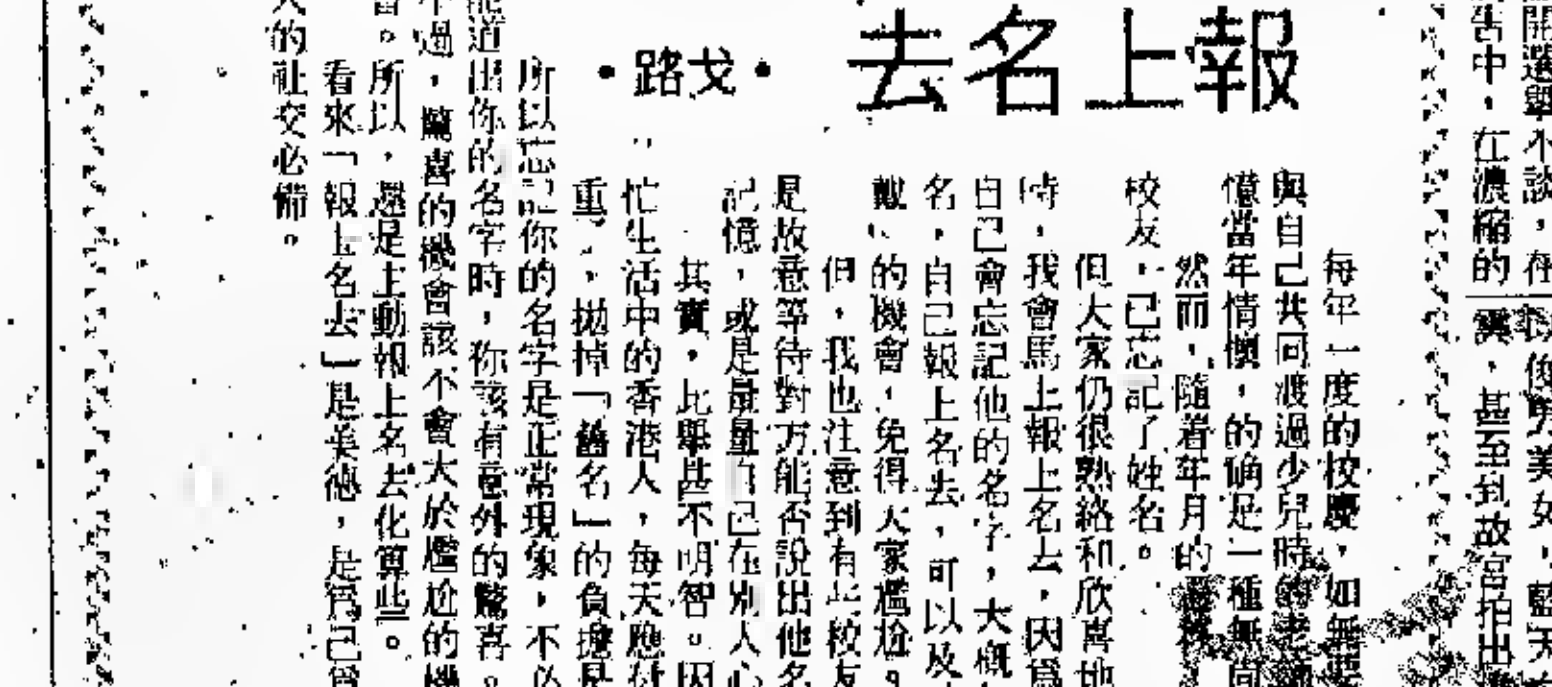 開選舉不談，在
俊男美女，藍天
告中，在濃縮的
甚至到故宮拍出
報上名去
・戈路・
每年一度的校慶，如無要
與自己共同渡過少兒時的老師
憶當年情懷，的确是一種無尚
然而，隨着年月的
校友，已忘記了姓名。
但大家仍很熟絡和欣喜地
時，我會馬上報上名去，因爲
自己會忘記他的名字，大概
名，自己報上名去，可以及
戴」的機會，免得大家尷尬。
但，我也注意到有此校友
是故意等待對方能否說出他名
記憶，或是量量自己在別人心
其實，此舉甚不明智。因
忙生活中的香港人，每天應付
重」，拋掉「舊名」的負擔是
所以忘記你的名字是正常現象，不必
能道出你的名字時，你該有意外的驚喜。
不過，驚喜的機會該不會大於尷尬的機
會。所以，還是主動報上名去化算些。
看來「報上名去」是美德，是爲己爲
人的社交必備。